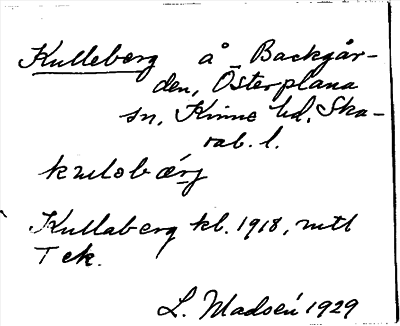 Kulleberg å Backgår-
den, Österplana
sn, Kinne hd, Ska-
rab. l.
Kullaberg kl. 1918, mtl
T ek.
L. Madsén 1929